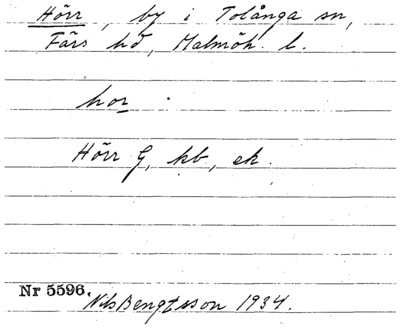 Hörr, by i Tolånga sn,
Färs hd, Malmöh. l.
hor
Hörr G, kb, ek.
Nr 5596.
Nils Bengtsson 1934.